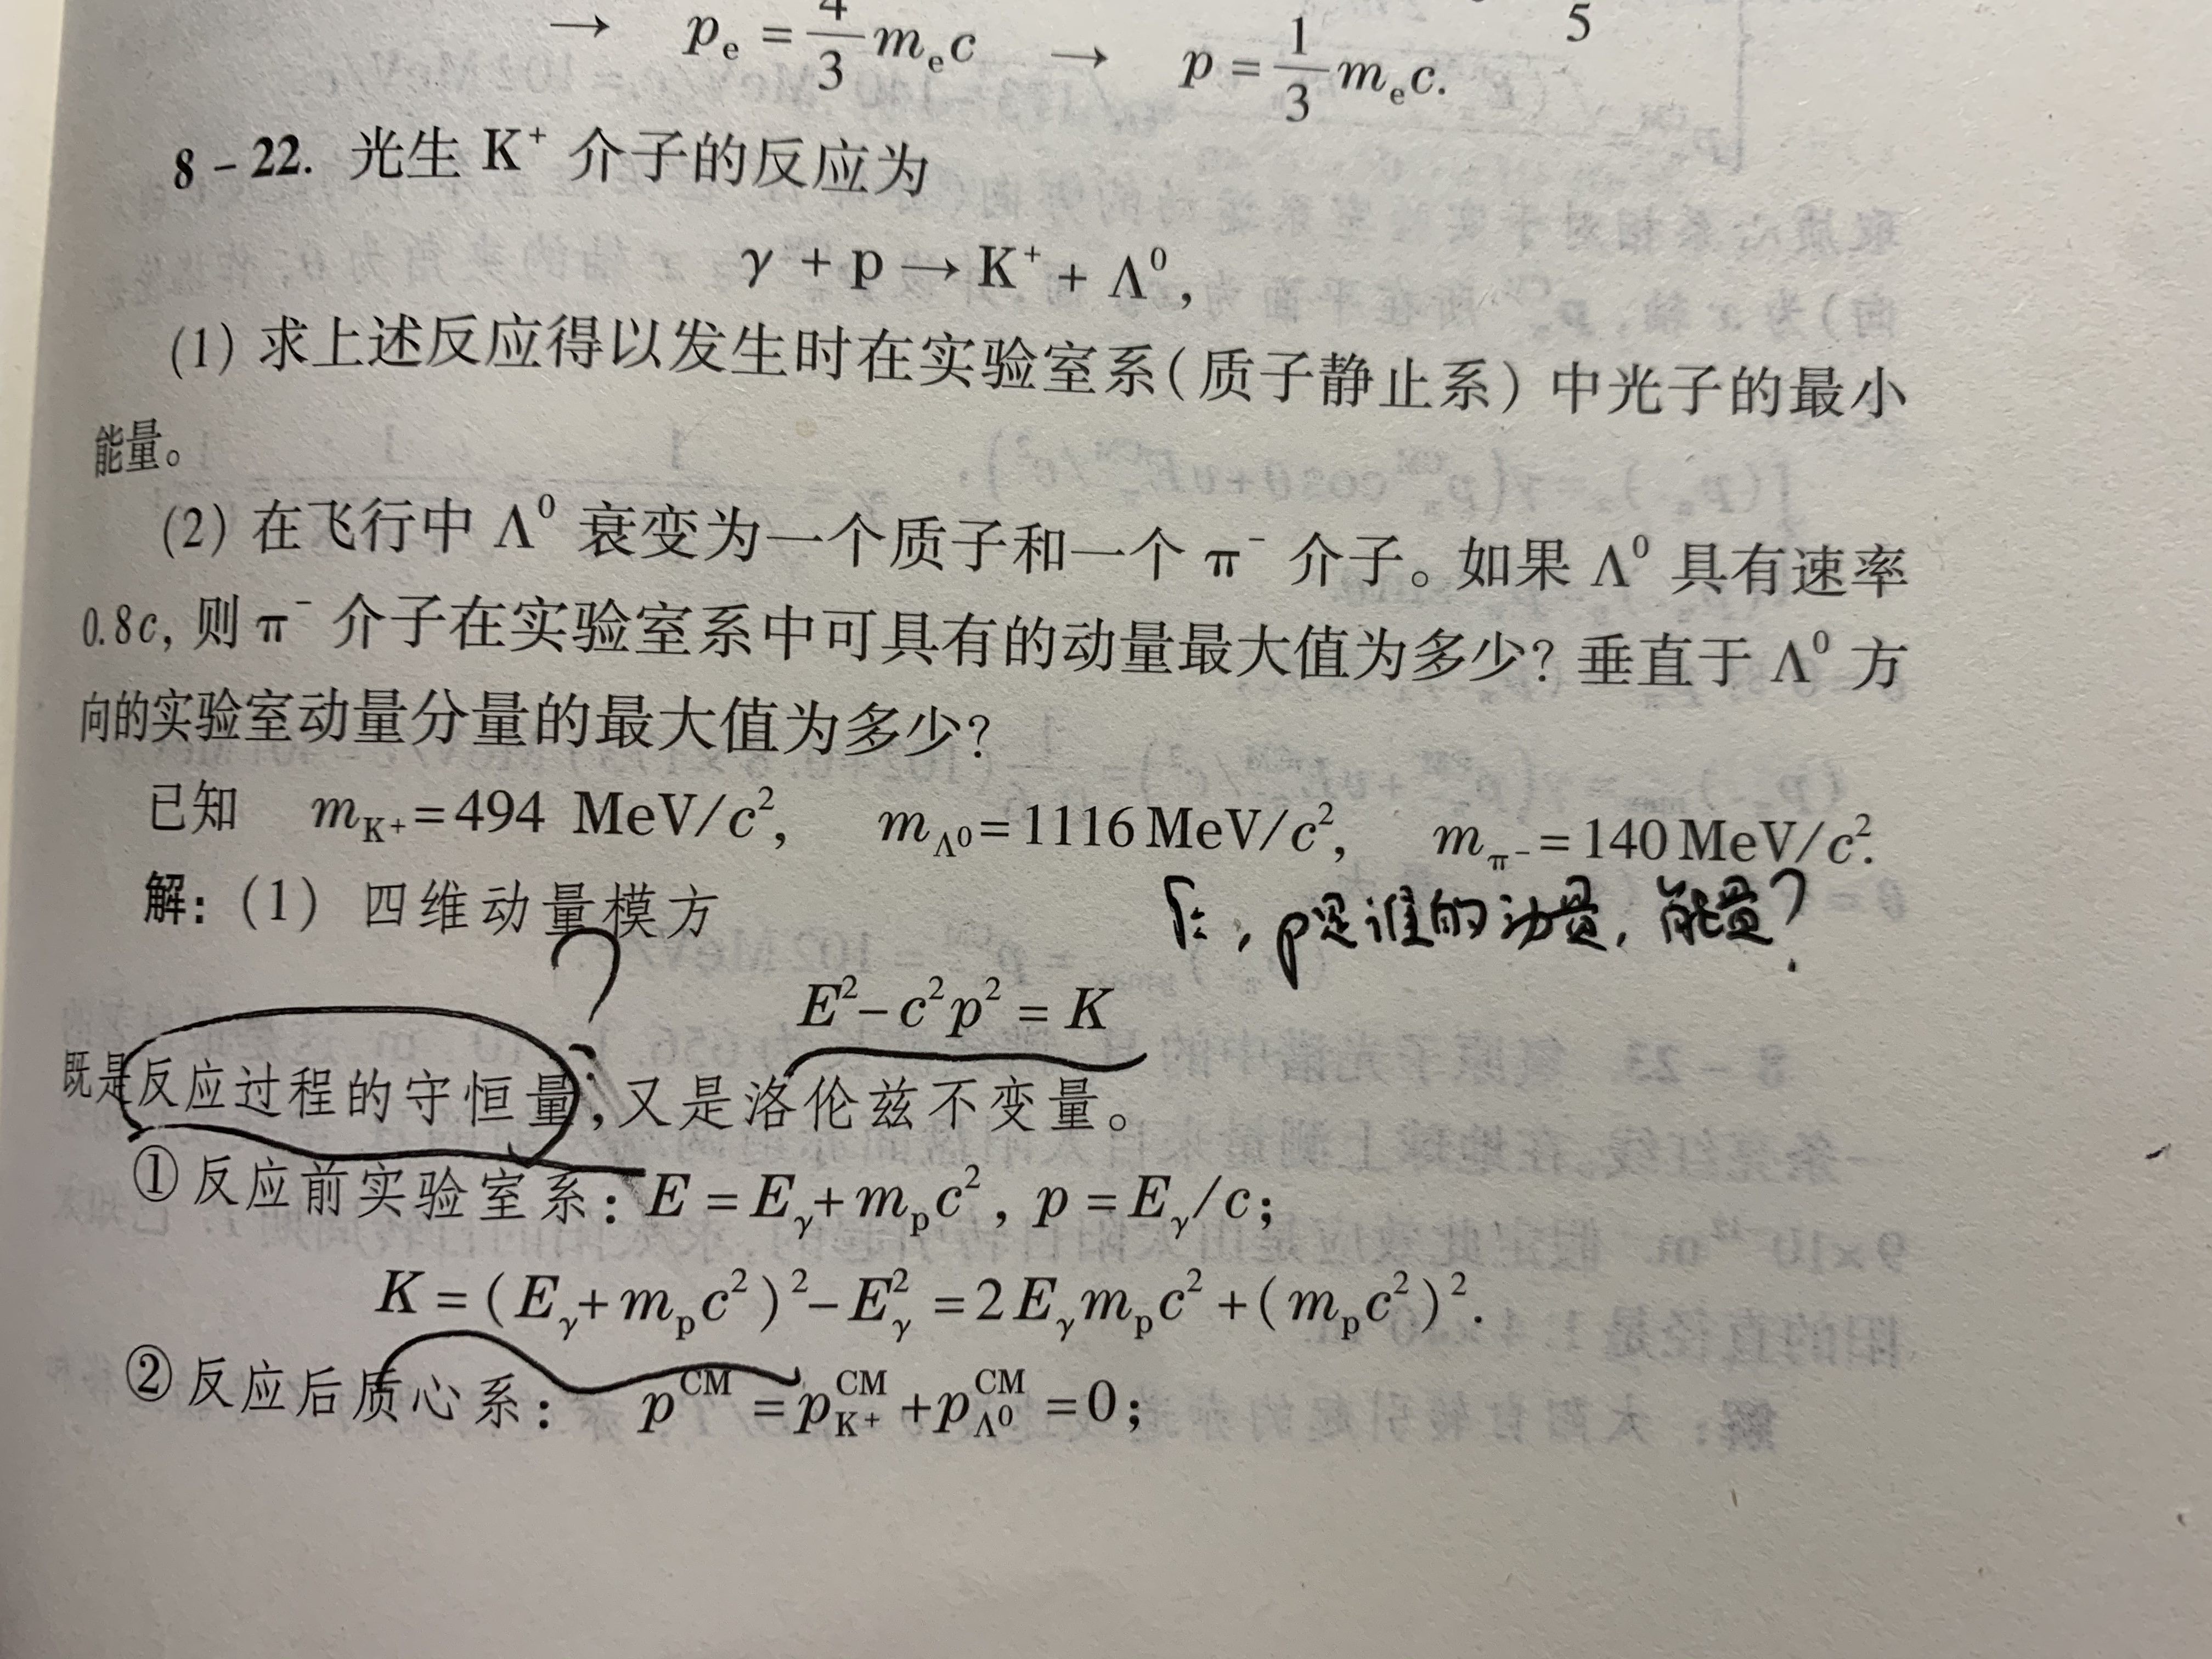 → pₑ = 4/3 mₑc → p = 1/3 mₑc. 5
8-22. 光生 K⁺ 介子的反应为
γ + p → K⁺ + Λ⁰,
(1) 求上述反应得以发生时在实验室系(质子静止系)中光子的最小
能量。
(2) 在飞行中 Λ⁰ 衰变为一个质子和一个 π⁻ 介子。如果 Λ⁰ 具有速率
0.8c, 则 π⁻ 介子在实验室系中可具有的动量最大值为多少? 垂直于 Λ⁰ 方
向的实验室动量分量的最大值为多少?
已知 m_K⁺ = 494 MeV/c², m_Λ⁰ = 1116 MeV/c², m_π⁻ = 140 MeV/c².
解: (1) 四维动量模方
, p是谁的动量, 能量?
?
E² - c²p² = K
既是反应过程的守恒量, 又是洛伦兹不变量。
① 反应前实验室系: E = E_γ + m_p c², p = E_γ/c;
K = (E_γ + m_p c²)² - E_γ² = 2E_γ m_p c² + (m_p c²)².
② 反应后质心系: p^CM = p_K⁺^CM + p_Λ⁰^CM = 0;